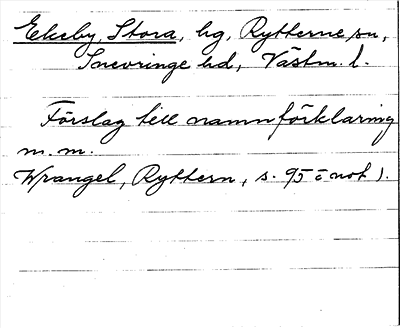 Ekeby, Stora, hg, Rytterne sn,
Snevringe hd, Västm. l.
Förslag till namnförklaring
m. m.
Wrangel, Ryttern, s. 95 o not 1.